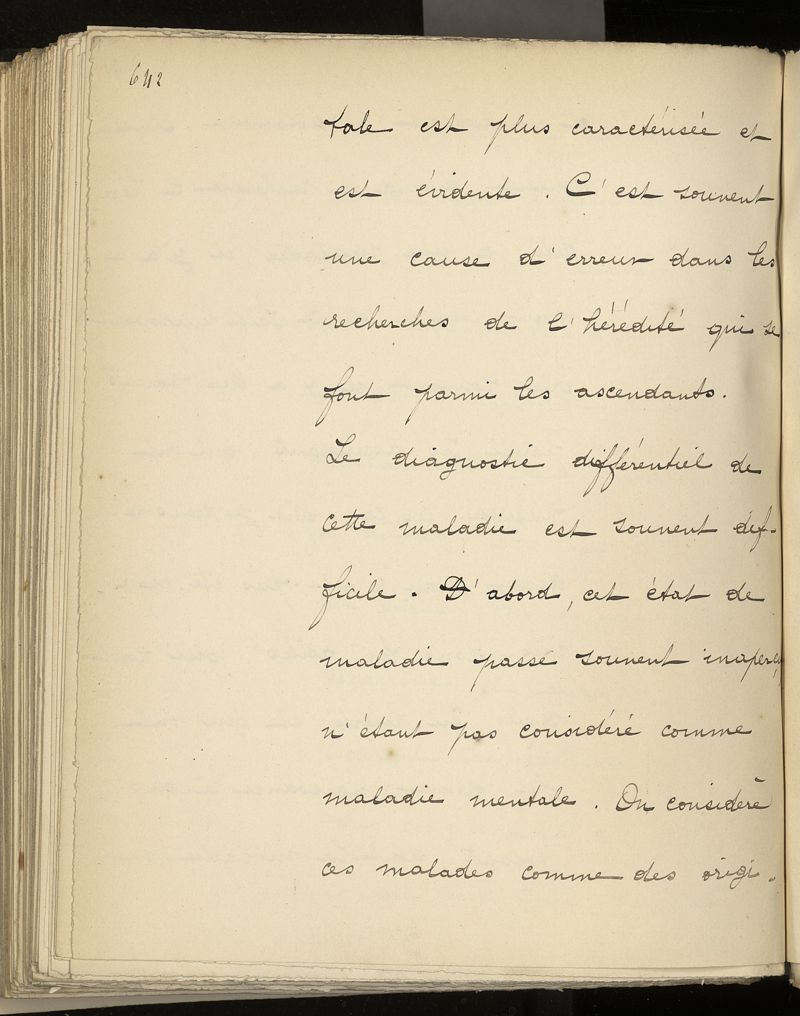 642
tale est plus caractérisée et
est évidente. C'est souvent
une cause d'erreur dans les
recherches de l'hérédité qui se
font parmi les ascendants.
Le diagnostic différentiel de
cette maladie est souvent dif-
ficile. D'abord, cet état de
maladie passe souvent inaperçu,
n'étant pas considéré comme
maladie mentale. On considère
ces malades comme des origi-